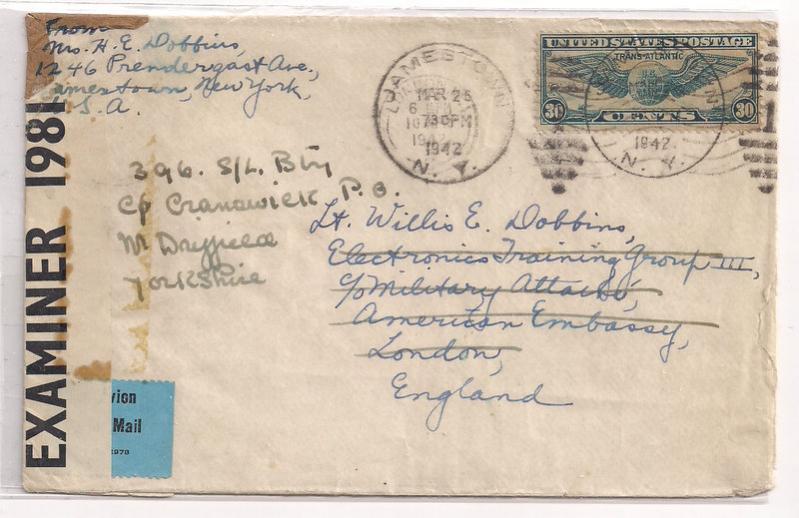 From
Mrs. H. E. Dobbins,
1246 Prendergast Ave.,
Jamestown, New York,
U.S.A.
EXAMINER 1981
JAMESTOWN
MAR 25
730 PM
1942
N. Y.
UNITED STATES POSTAGE
TRANS-ATLANTIC
30 CENTS 30
1942
N. Y.
396. S/L. Bty
C/o Cranswick P.O.
Nr Driffield
Yorkshire
Lt. Willis E. Dobbins,
Electronics Training Group III,
c/o Military Attaché,
American Embassy,
London,
England
vion
Mail
1978